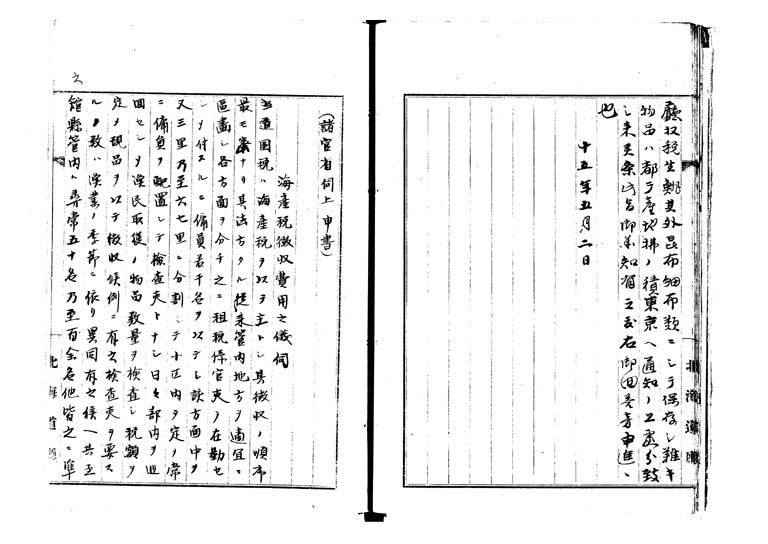 廳収税生鄕其外昆布細布類ニシテ保存シ難キ
物品ハ都テ産地拂ノ積東京ヘ通知ノ上處分致
シ来候条此旨御承知有之度右御回答旁申進
也
十五年五月二日
(諸官省伺上申書)
海産税徴収費用之儀伺
当道国税ハ海産税ヲ以テ主トシ其徴収ノ順序
最モ業ナリ其法方タル従来管内地方ヲ適宜ニ
區畫シ各方面ヲ分チ之ニ租税係官吏ヲ在勤セ
シメ付スルニ傭員若干名ヲ以テシ該方面中ヲ
又三里乃至六七里ニ分割シテ小区内ヲ定メ常
ニ傭員ヲ配置シテ検査夫トナシ日々部内ヲ巡
回セシメ漁民収穫ノ物品数量ヲ検査シ税額ヲ
定メ現品ヲ以テ徴収候例ニ有之検査夫ヲ要ス
ル員数ハ漁業ノ季節ニ依リ異同有之候ヘ共函
館縣管内ハ尋常五十名乃至百余名他皆之ニ準
北海道廳
北海道廳